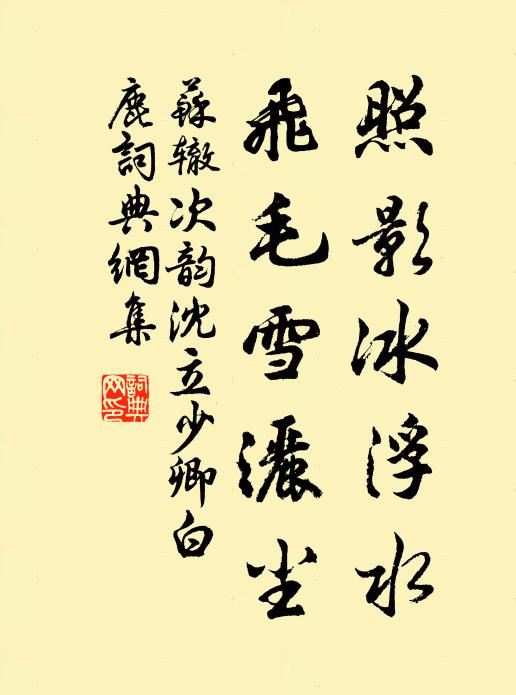 照影冰浮水
飛毛雪灑尘
蘇辙次韵沈立少卿白
鹿詞典網集
詞典